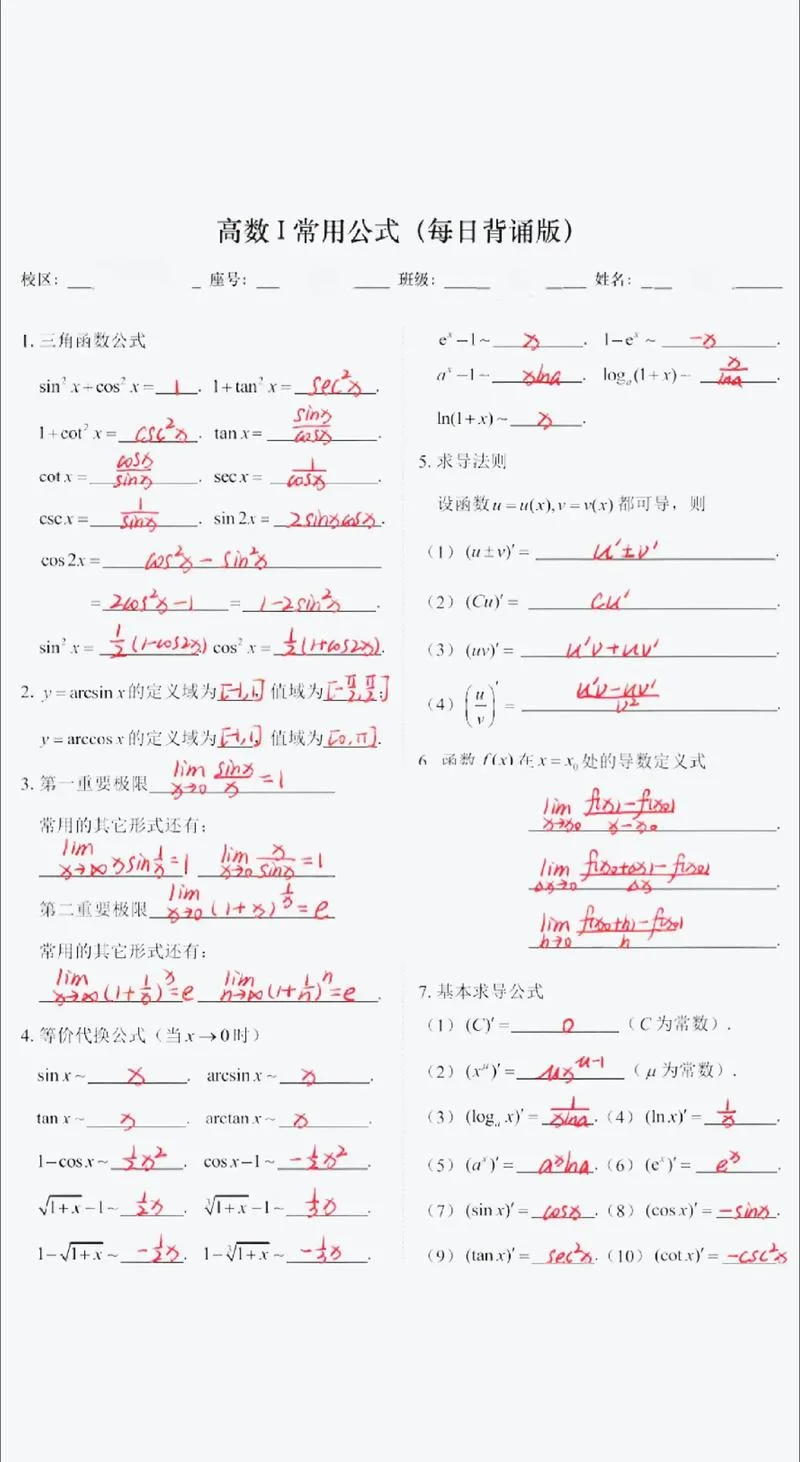 高数 I 常用公式（每日背诵版）
校区：___ 座号：___ 班级：___ 姓名：___
1. 三角函数公式
sin² x + cos² x = 1. 1 + tan² x = sec²x.
1 + cot² x = csc²x. tan x = sinx/cosx.
cot x = cosx/sinx. sec x = 1/cosx.
csc x = 1/sinx. sin 2x = 2sinxcosx.
cos 2x = cos²x − sin²x
= 2cos²x − 1 = 1 − 2sin²x.
sin² x = ½(1−cos2x) cos² x = ½(1+cos2x).
2. y = arcsin x 的定义域为[-1,1] 值域为[-π/2, π/2];
y = arccos x 的定义域为[-1,1] 值域为[0,π].
3. 第一重要极限 lim x→0 sinx/x = 1
常用的其它形式还有：
lim x→∞ x sin 1/x = 1 lim x→0 x/sinx = 1
第二重要极限 lim x→0 (1+x)^(1/x) = e
常用的其它形式还有：
lim x→∞ (1+1/x)^x = e lim n→∞ (1+1/n)^n = e.
4. 等价代换公式（当 x → 0 时）
sin x ~ x. arcsin x ~ x.
tan x ~ x. arctan x ~ x.
1−cos x ~ ½x². cos x −1 ~ −½x².
√(1+x) −1 ~ ½x. ∛(1+x) −1 ~ ⅓x.
1−√(1+x) ~ −½x. 1−∛(1+x) ~ −⅓x.
eˣ −1 ~ x. 1−eˣ ~ −x.
aˣ −1 ~ xlna. logₐ(1+x) ~ x/lna.
ln(1+x) ~ x.
5. 求导法则
设函数 u = u(x), v = v(x) 都可导，则
（1）(u ± v)′ = u′±v′.
（2）(Cu)′ = Cu′.
（3）(uv)′ = u′v+uv′.
（4）(u/v)′ = (u′v−uv′)/v².
6 函数 f(x) 在 x = x₀ 处的导数定义式
lim x→x₀ (f(x)−f(x₀))/(x−x₀).
lim Δx→0 (f(x₀+Δx)−f(x₀))/Δx.
lim h→0 (f(x₀+h)−f(x₀))/h.
7. 基本求导公式
（1）(C)′ = 0（C 为常数）.
（2）(x^μ)′ = μx^(μ−1)（μ 为常数）.
（3）(logₐ x)′ = 1/(xlna).（4）(ln x)′ = 1/x.
（5）(aˣ)′ = aˣlna.（6）(eˣ)′ = eˣ.
（7）(sin x)′ = cosx.（8）(cos x)′ = −sinx.
（9）(tan x)′ = sec²x.（10）(cot x)′ = −csc²x